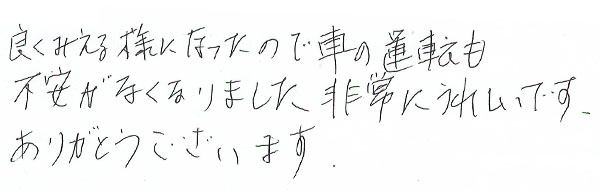 良くみえる様になったので車の運転も
不安がなくなりました、非常にうれしいです、
ありがとうございます.